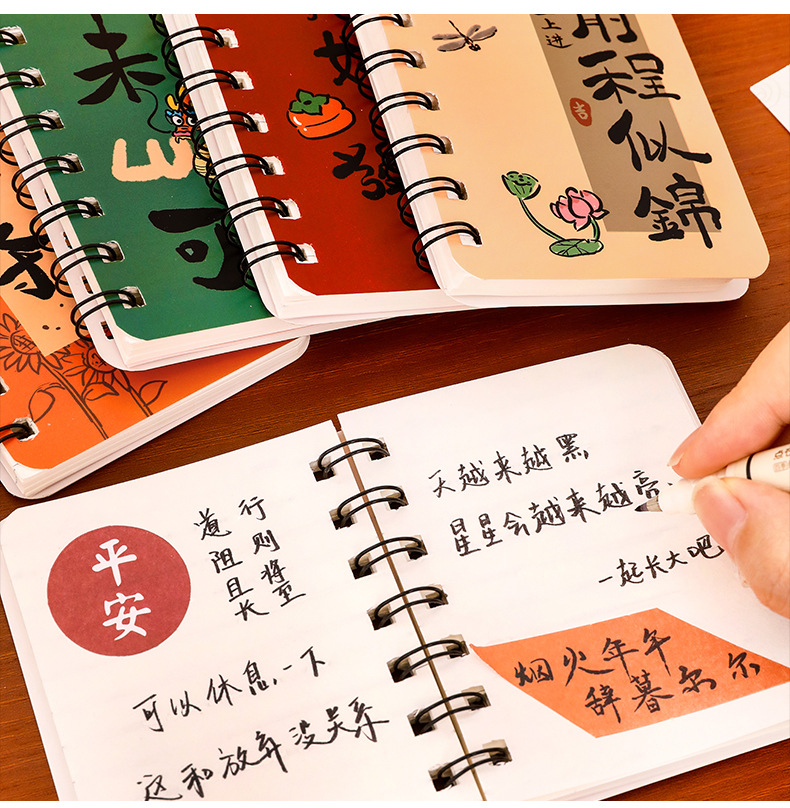 未
可
上进
前程似錦
吉
平安
道阻且长
行则将至
可以休息一下
这和放弃没关系
天越来越黑
星星会越来越亮.
一起长大吧
烟火年年
辞暮尔尔